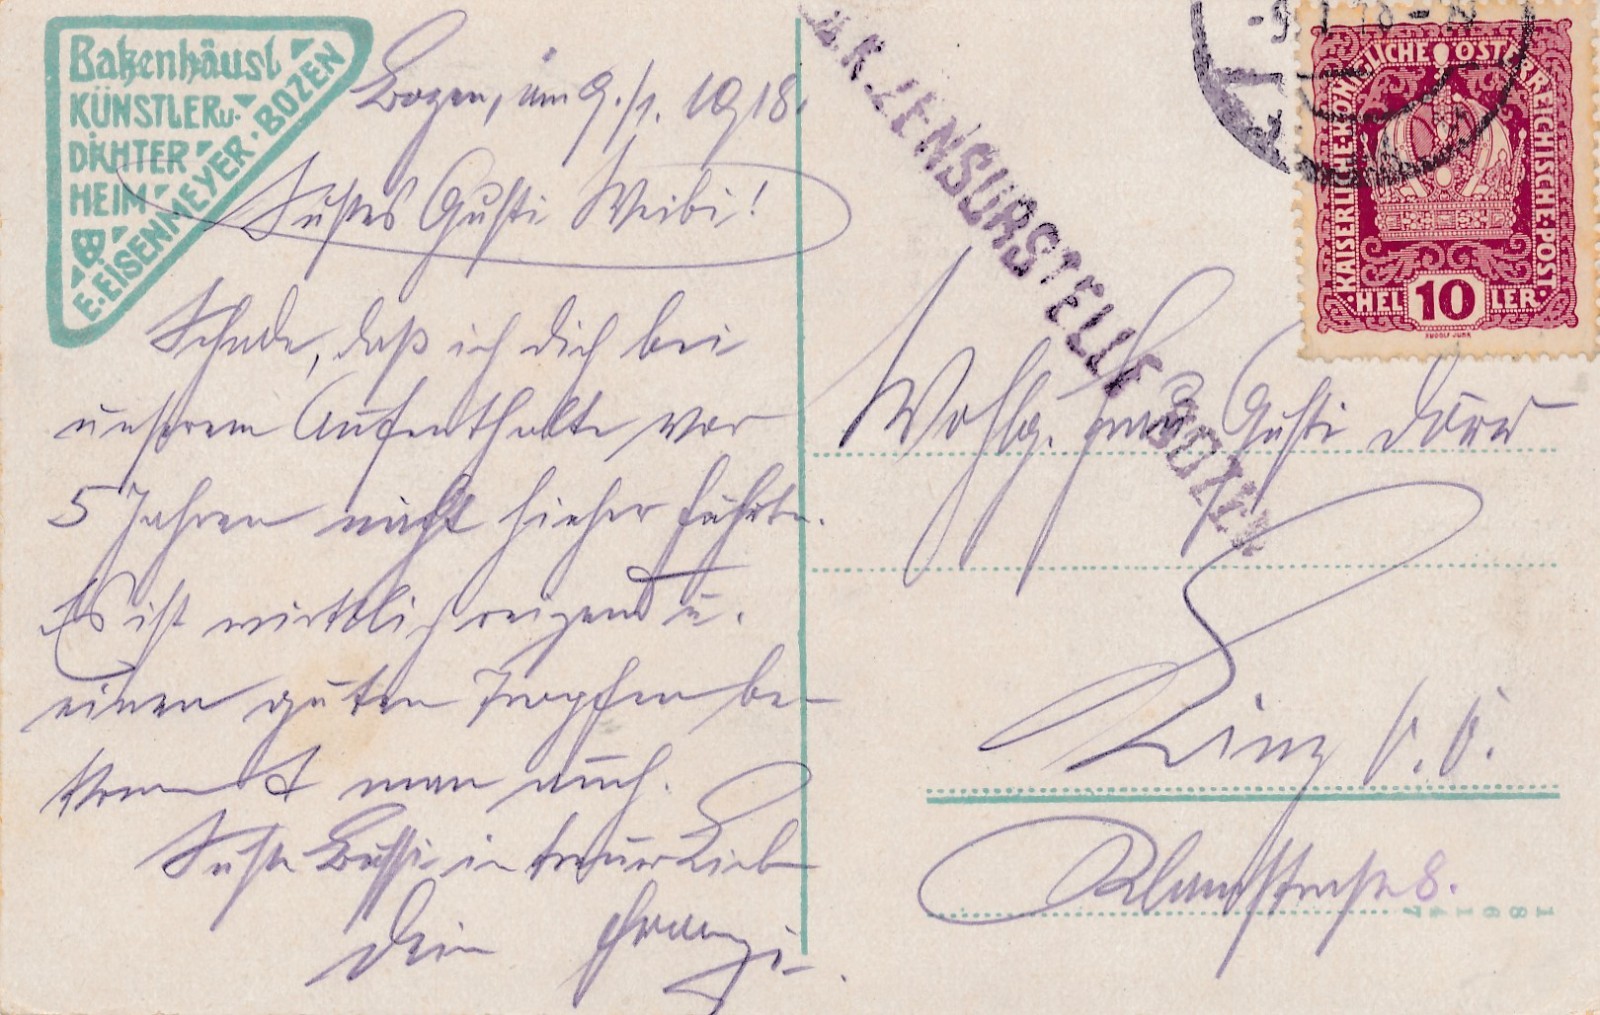 Batzenhäusl
KÜNSTLER u.
DICHTER
HEIM
E. EISENMEYER · BOZEN
Bozen, am 9./1. 1918.
Süstes Gusti Weibi!
Schade, daß ich dich bei
unserem Aufenthalte vor
5 Jahren nicht hieher führte.
Es ist wirklich reizend u.
einen guten Tropfen be-
kommt man auch.
Süße Bussi in treuer Liebe
dein Franzi.
K.u.K. ZENSURSTELLE BOZEN
-9.1.18-
KAISERLICHE·KÖNIGLICHE·ÖSTERREICHISCHE·POST
·HEL 10 LER·
RUDOLF JUNK
Wohlg. Frau Gusti
Linz O.Ö.
straße 8.
186147